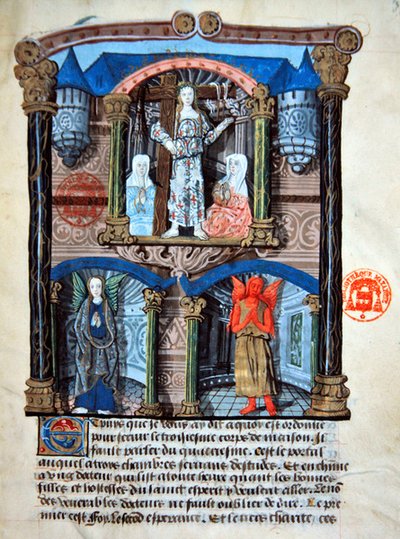 puys que je vous ay dit aquoy est ordonne
pour le troisiesme corps de maison. Je
parler du quatriesme. cest le portal
auquel a troys chambres seruans destudes. Et en chūne
a vng docteur qui list a toute heure quant les bonnes
filles et hostesses du sainct esperit y veulent aller. Le nō
des venerables docteurs ne fault oublier de dire. Le pre
mier cest Foy. Le second esperance. Et le tiers charite. ces